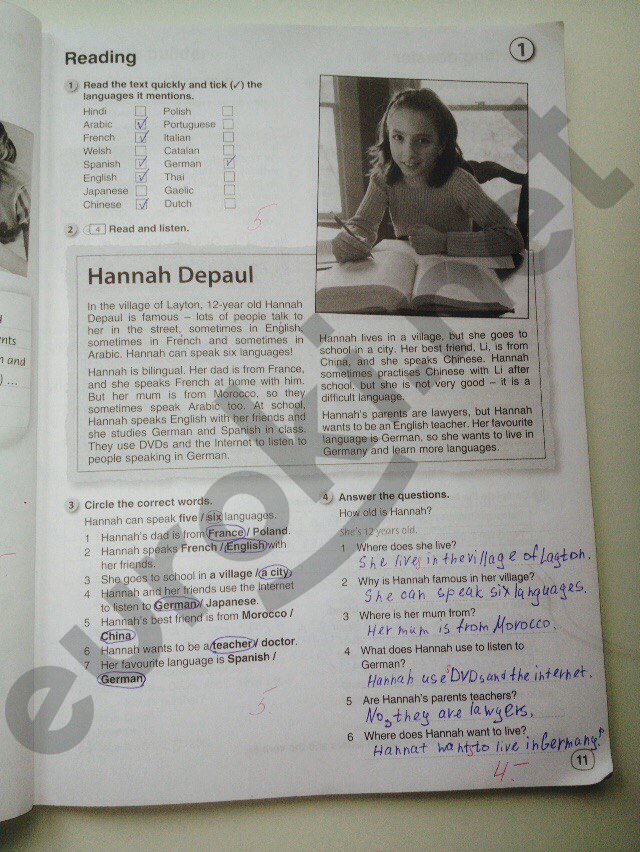 Reading
1
1 Read the text quickly and tick (✓) the
languages it mentions.
Hindi Polish
Arabic ✓ Portuguese
French ✓ Italian
Welsh Catalan
Spanish ✓ German ✓
English ✓ Thai
Japanese Gaelic
Chinese ✓ Dutch
5
2 4 Read and listen.
Hannah Depaul
In the village of Layton, 12-year old Hannah
Depaul is famous – lots of people talk to
her in the street, sometimes in English,
sometimes in French and sometimes in
Arabic. Hannah can speak six languages!
Hannah is bilingual. Her dad is from France,
and she speaks French at home with him.
But her mum is from Morocco, so they
sometimes speak Arabic too. At school,
Hannah speaks English with her friends and
she studies German and Spanish in class.
They use DVDs and the Internet to listen to
people speaking in German.
Hannah lives in a village, but she goes to
school in a city. Her best friend, Li, is from
China, and she speaks Chinese. Hannah
sometimes practises Chinese with Li after
school, but she is not very good – it is a
difficult language.
Hannah's parents are lawyers, but Hannah
wants to be an English teacher. Her favourite
language is German, so she wants to live in
Germany and learn more languages.
3 Circle the correct words.
Hannah can speak five / six languages.
1 Hannah's dad is from France / Poland.
2 Hannah speaks French / English with
her friends.
3 She goes to school in a village / a city.
4 Hannah and her friends use the Internet
to listen to German / Japanese.
5 Hannah's best friend is from Morocco /
China.
6 Hannah wants to be a teacher / doctor.
7 Her favourite language is Spanish /
German.
5
4 Answer the questions.
How old is Hannah?
She's 12 years old.
1 Where does she live?
She live in the village of Layton.
2 Why is Hannah famous in her village?
She can speak six languages.
3 Where is her mum from?
Her mum is from Morocco.
4 What does Hannah use to listen to
German?
Hannah use DVDs and the internet.
5 Are Hannah's parents teachers?
No, they are lawyers.
6 Where does Hannah want to live?
Hannat wants to live in Germany.
4-
11
nts
n and
evrokniga.net